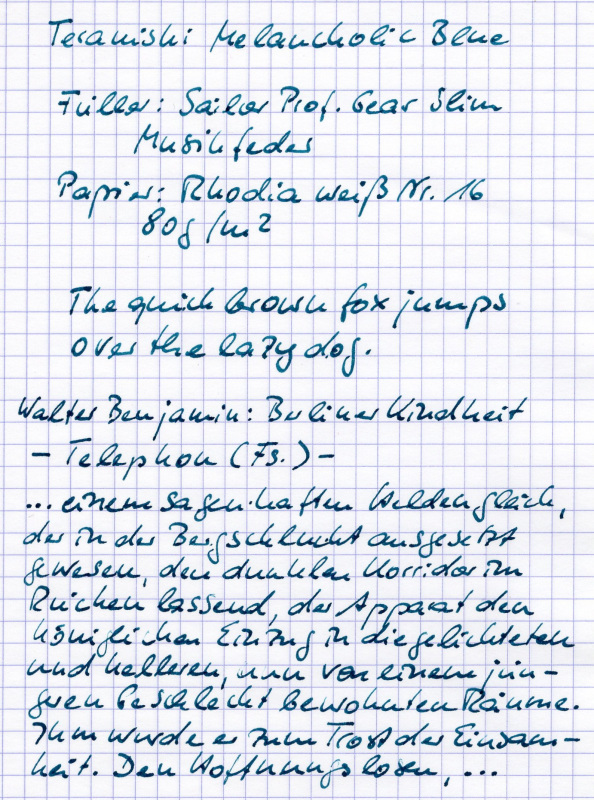 Teranishi Melancholic Blue
Füller: Sailor Prof. Gear Slim
Musikfeder
Papier: Rhodia weiß Nr. 16
80g/m2
The quick brown fox jumps
over the lazy dog.
Walter Benjamin: Berliner Kindheit
– Telephon (Fs.) –
... einem sagenhaften Helden gleich,
der in der Bergschlucht ausgesetzt
gewesen, den dunklen Korridor im
Rücken lassend, der Apparat den
königlichen Einzug in die gelichteten
und helleren, nun von einem jün-
geren Geschlecht bewohnten Räume.
Ihm wurde er zum Trost der Einsam-
keit. Den Hoffnungslosen, ...